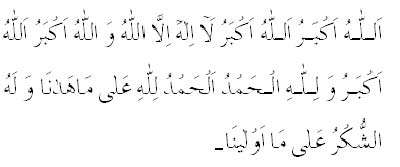 اَللّٰهُ اَكْبَرُ اَللّٰهُ اَكْبَرُ لَآ اِلٰهَ اِلَّا اللّٰهُ وَ اللّٰهُ اَكْبَرُ اَللّٰهُ
اَكْبَرُ وَ لِلّٰهِ الْحَمْدُ اَلْحَمْدُ لِلّٰهِ عَلٰى مَاهَدٰنَا وَ لَهُ
الشُّكْرُ عَلٰى مَا اَوْلٰينَا